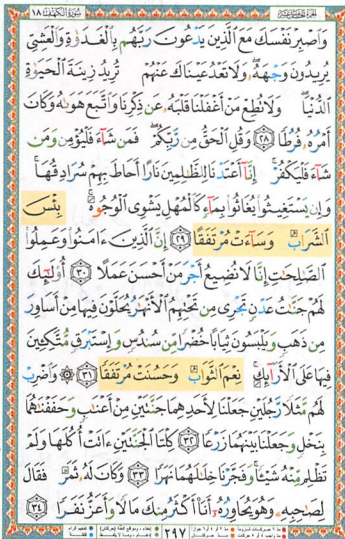 الجزء الخامس عشر سورة الكهف ١٨
وَٱصۡبِرۡ نَفۡسَكَ مَعَ ٱلَّذِينَ يَدۡعُونَ رَبَّهُم بِٱلۡغَدَوٰةِ وَٱلۡعَشِيِّ
يُرِيدُونَ وَجۡهَهُۥۖ وَلَا تَعۡدُ عَيۡنَاكَ عَنۡهُمۡ تُرِيدُ زِينَةَ ٱلۡحَيَوٰةِ
ٱلدُّنۡيَاۖ وَلَا تُطِعۡ مَنۡ أَغۡفَلۡنَا قَلۡبَهُۥ عَن ذِكۡرِنَا وَٱتَّبَعَ هَوَىٰهُ وَكَانَ
أَمۡرُهُۥ فُرُطٗا ٢٨ وَقُلِ ٱلۡحَقُّ مِن رَّبِّكُمۡۖ فَمَن شَآءَ فَلۡيُؤۡمِن وَمَن
شَآءَ فَلۡيَكۡفُرۡۚ إِنَّآ أَعۡتَدۡنَا لِلظَّٰلِمِينَ نَارًا أَحَاطَ بِهِمۡ سُرَادِقُهَاۚ
وَإِن يَسۡتَغِيثُواْ يُغَاثُواْ بِمَآءٖ كَٱلۡمُهۡلِ يَشۡوِي ٱلۡوُجُوهَۚ بِئۡسَ
ٱلشَّرَابُ وَسَآءَتۡ مُرۡتَفَقًا ٢٩ إِنَّ ٱلَّذِينَ ءَامَنُواْ وَعَمِلُواْ
ٱلصَّٰلِحَٰتِ إِنَّا لَا نُضِيعُ أَجۡرَ مَنۡ أَحۡسَنَ عَمَلًا ٣٠ أُوْلَٰٓئِكَ
لَهُمۡ جَنَّٰتُ عَدۡنٖ تَجۡرِي مِن تَحۡتِهِمُ ٱلۡأَنۡهَٰرُ يُحَلَّوۡنَ فِيهَا مِنۡ أَسَاوِرَ
مِن ذَهَبٖ وَيَلۡبَسُونَ ثِيَابًا خُضۡرٗا مِّن سُندُسٖ وَإِسۡتَبۡرَقٖ مُّتَّكِـِٔينَ
فِيهَا عَلَى ٱلۡأَرَآئِكِۚ نِعۡمَ ٱلثَّوَابُ وَحَسُنَتۡ مُرۡتَفَقٗا ٣١ ۞ وَٱضۡرِبۡ
لَهُم مَّثَلٗا رَّجُلَيۡنِ جَعَلۡنَا لِأَحَدِهِمَا جَنَّتَيۡنِ مِنۡ أَعۡنَٰبٖ وَحَفَفۡنَٰهُمَا
بِنَخۡلٖ وَجَعَلۡنَا بَيۡنَهُمَا زَرۡعٗا ٣٢ كِلۡتَا ٱلۡجَنَّتَيۡنِ ءَاتَتۡ أُكُلَهَا وَلَمۡ
تَظۡلِم مِّنۡهُ شَيۡـٔٗاۚ وَفَجَّرۡنَا خِلَٰلَهُمَا نَهَرٗا ٣٣ وَكَانَ لَهُۥ ثَمَرٞ فَقَالَ
لِصَٰحِبِهِۦ وَهُوَ يُحَاوِرُهُۥٓ أَنَا۠ أَكۡثَرُ مِنكَ مَالٗا وَأَعَزُّ نَفَرٗا ٣٤
٢٩٧